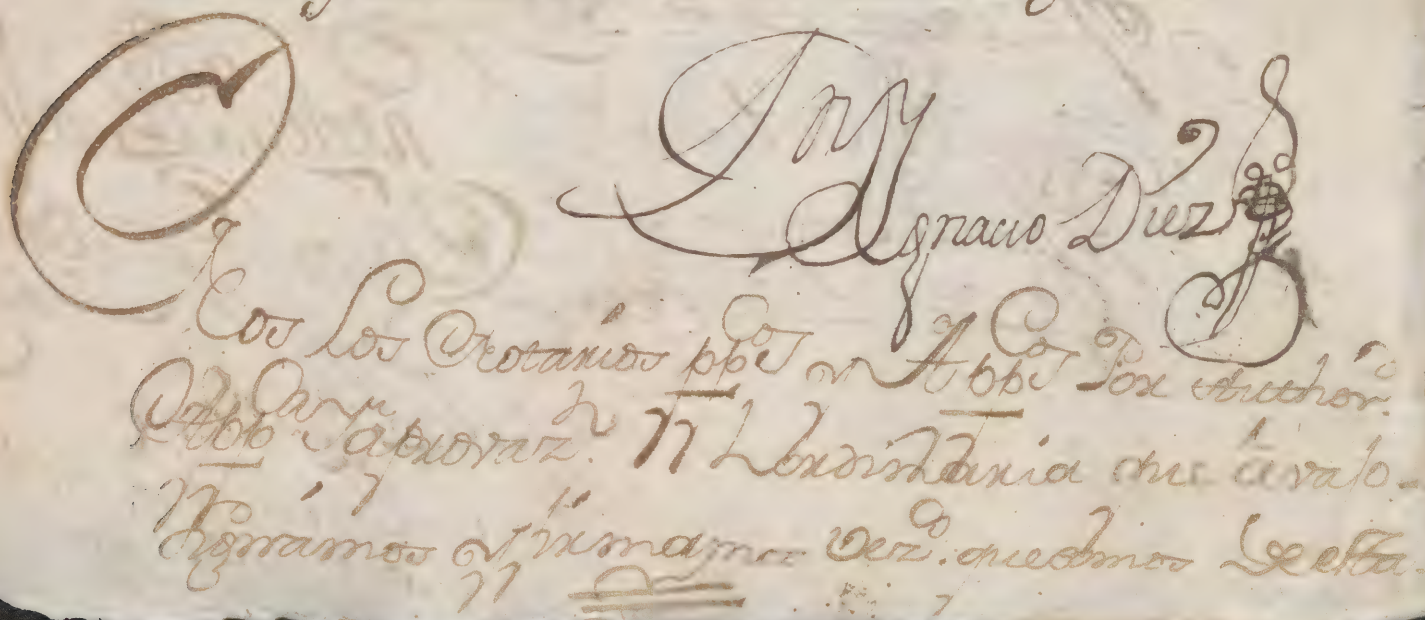 Ignacio Diez
Nos Los Notarios ppcos y App.cos Por Author.
App.ca y aprovaz.n Hordinaria que avajo
signamos y firmamos Vez.os que somos de esta